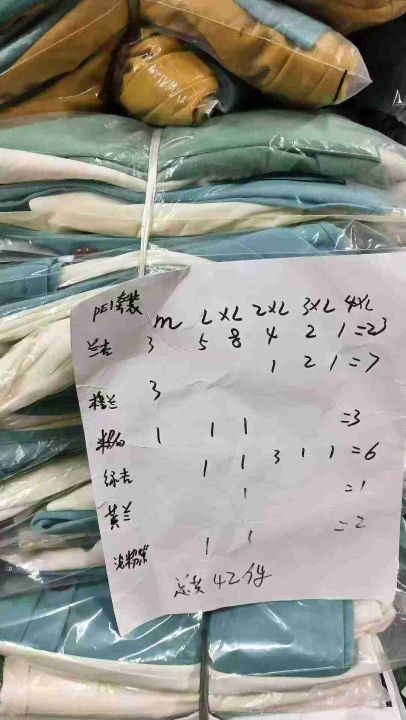 PE1套装 m L XL 2XL 3XL 4XL
兰杏 3 5 8 4 2 1 =23
橙兰 3 1 2 1 =7
粉白 1 1 1 =3
绿杏 1 1 3 1 1 =6
黄兰 1 =1
1 1 =2
总共42件